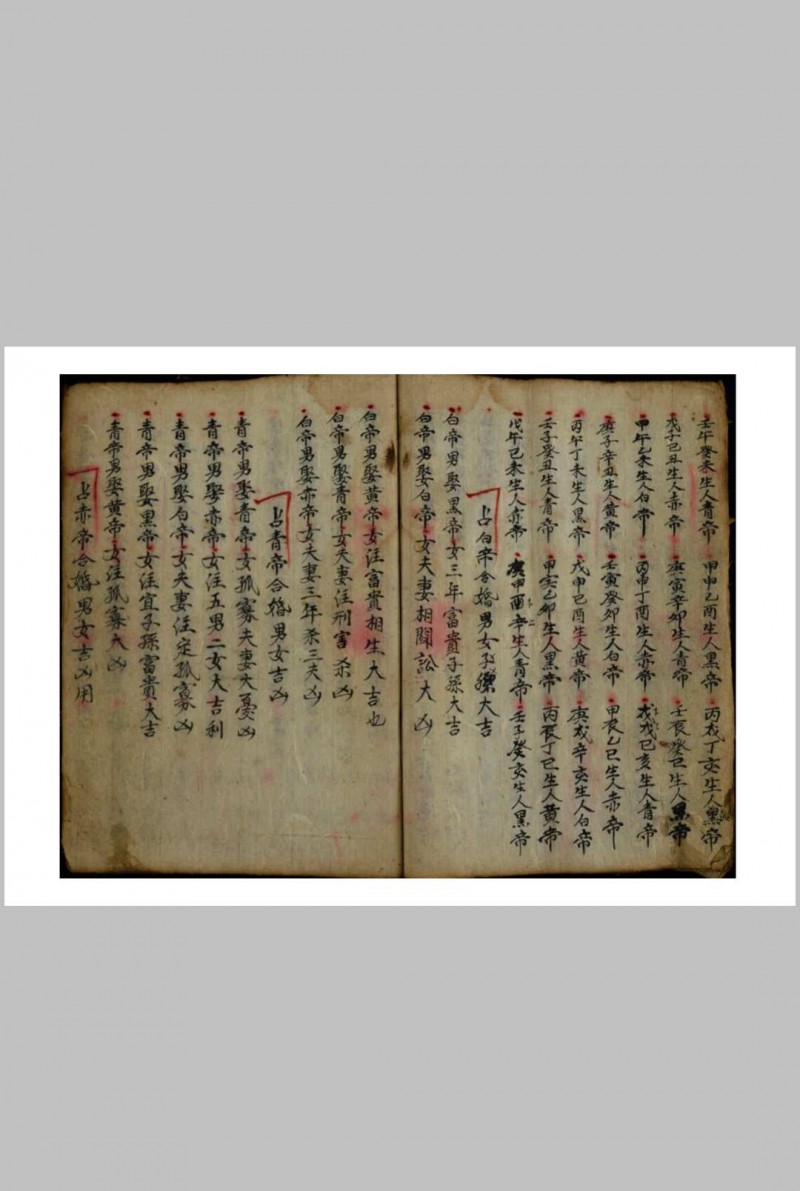 壬午癸未生人青帝 甲申乙酉生人黑帝 丙戌丁亥生人黑帝
戊子己丑生人赤帝 庚寅辛卯生人青帝 壬辰癸巳生人黑帝
甲午乙未生人白帝 丙申丁酉生人赤帝 戊戌己亥生人青帝
庚子辛丑生人黄帝 壬寅癸卯生人白帝 甲辰乙巳生人赤帝
丙午丁未生人黑帝 戊申己酉生人黄帝 庚戌辛亥生人白帝
壬子癸丑生人青帝 甲寅乙卯生人黑帝 丙辰丁巳生人黄帝
戊午己未生人赤帝 庚申酉辛生人青帝 壬子癸亥生人黑帝
占白帝合婚男女子孫大吉
白帝男娶黑帝女三年富貴子孫大吉
白帝男娶白帝女夫妻相鬪訟大凶
白帝男娶黄帝女注富貴相生大吉也
白帝男娶青帝女夫妻注刑害杀凶
白帝男娶赤帝女夫妻三年杀三夫凶
占青帝合婚男女吉凶
青帝男娶青帝女孤寡夫妻大憂凶
青帝男娶赤帝女注五男二女大吉利
青帝男娶白帝女夫妻注定孤寡凶
青帝男娶黑帝女注宜子孫富貴大吉
青帝男娶黄帝女注孤寡大凶
占赤帝合婚男女吉凶用